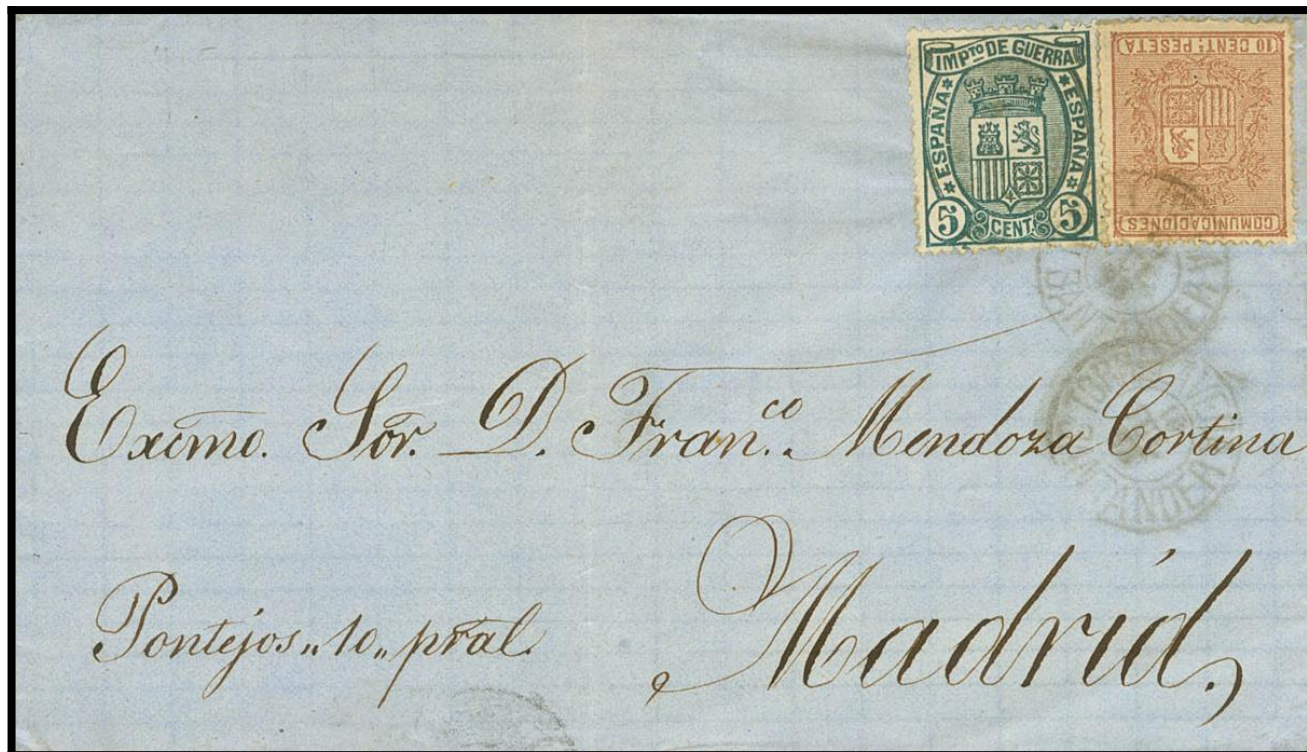 IMPTO DE GUERRA
ESPAÑA
ESPAÑA
5 CENT. 5
10 CENTS PESETA
COMUNICACIONES
SANTANDER
Excmo. Sor. D. Franco. Mendoza Cortina
Pontejos „10„ pral.
Madrid.